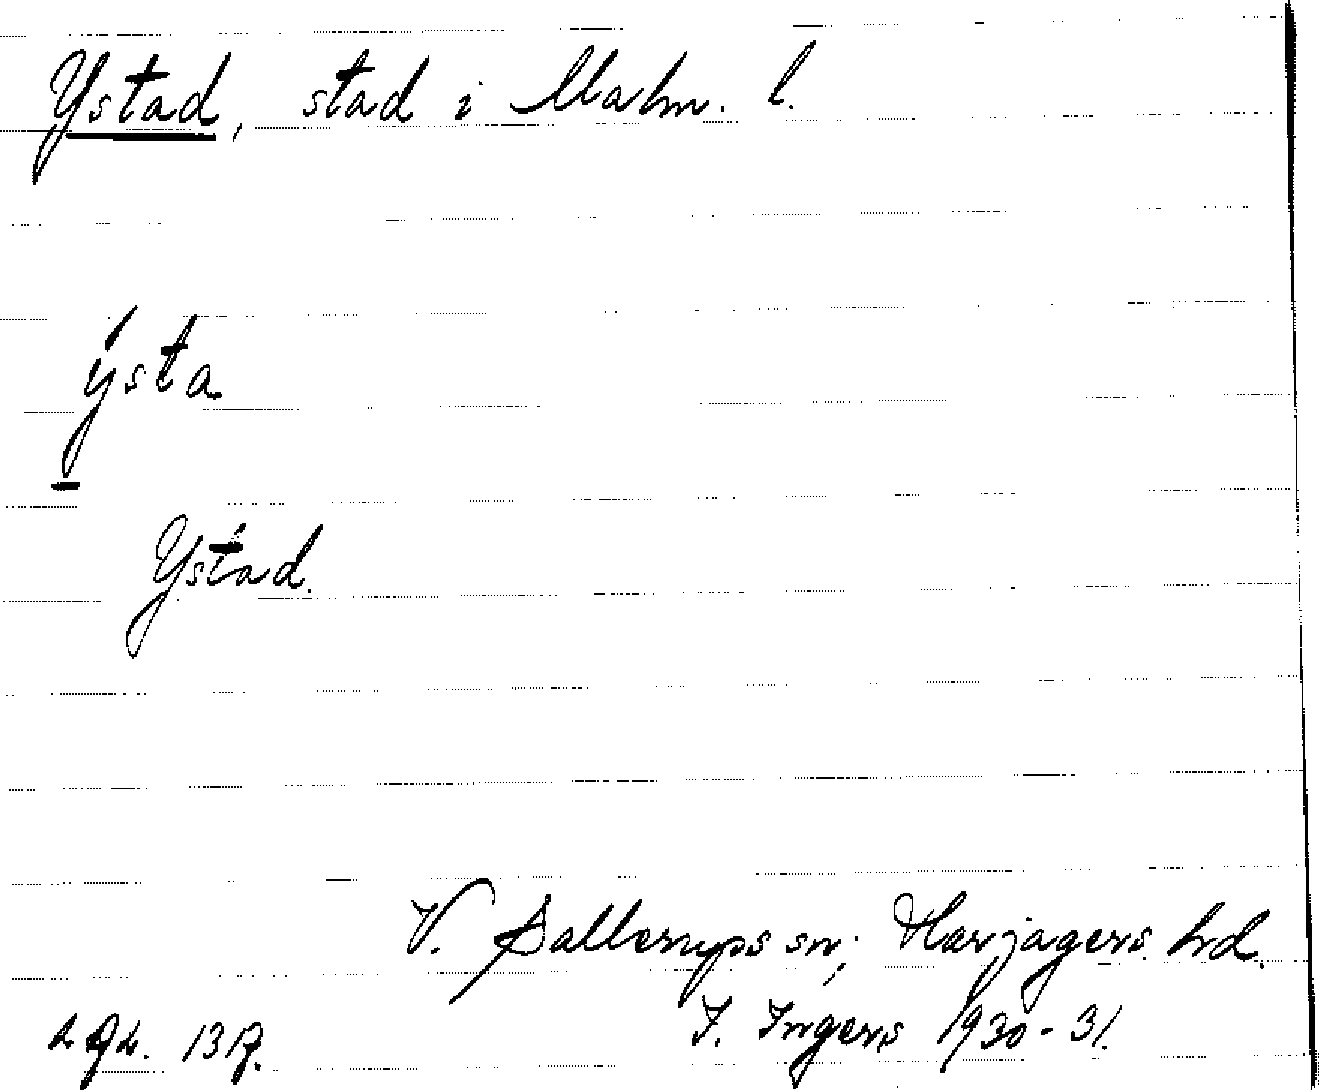 Ystad, stad i Malm. l.
ýsta
Ystad.
V. Sallerups sn; Harjagers hrd.
I. Ingers 1930-31.